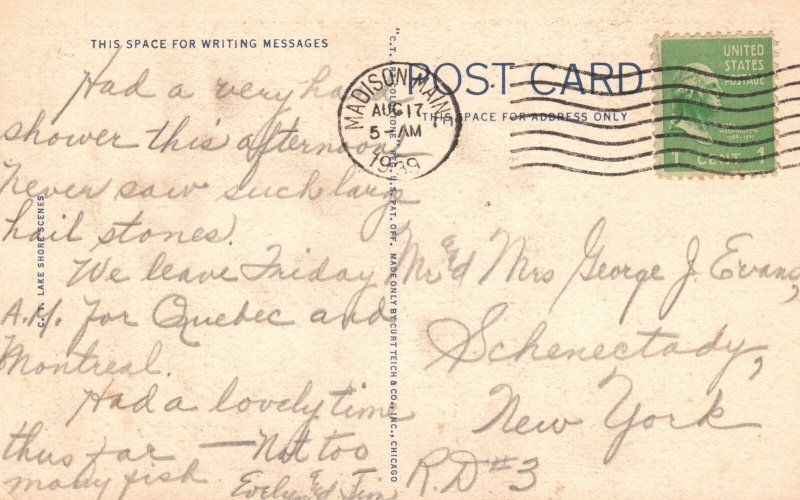 THIS SPACE FOR WRITING MESSAGES
Had a very hard
shower this afternoon
Never saw such large
hail stones.
We leave Friday
A.M. for Quebec and
Montreal.
Had a lovely time
thus far — Not too
many fish Evelyn and Jim
C. T. LAKE SHORE SCENES
"C.T. ART-COLORTONE" REG. U.S. PAT. OFF. MADE ONLY BY CURT TEICH & CO., INC., CHICAGO
POST CARD
THIS SPACE FOR ADDRESS ONLY
MADISON, MAINE
AUG 17
5 - AM
1939
UNITED
STATES
POSTAGE
WASHINGTON
1 CENT 1
Mr and Mrs George J. Evans,
Schenectady,
New York
R.D #3